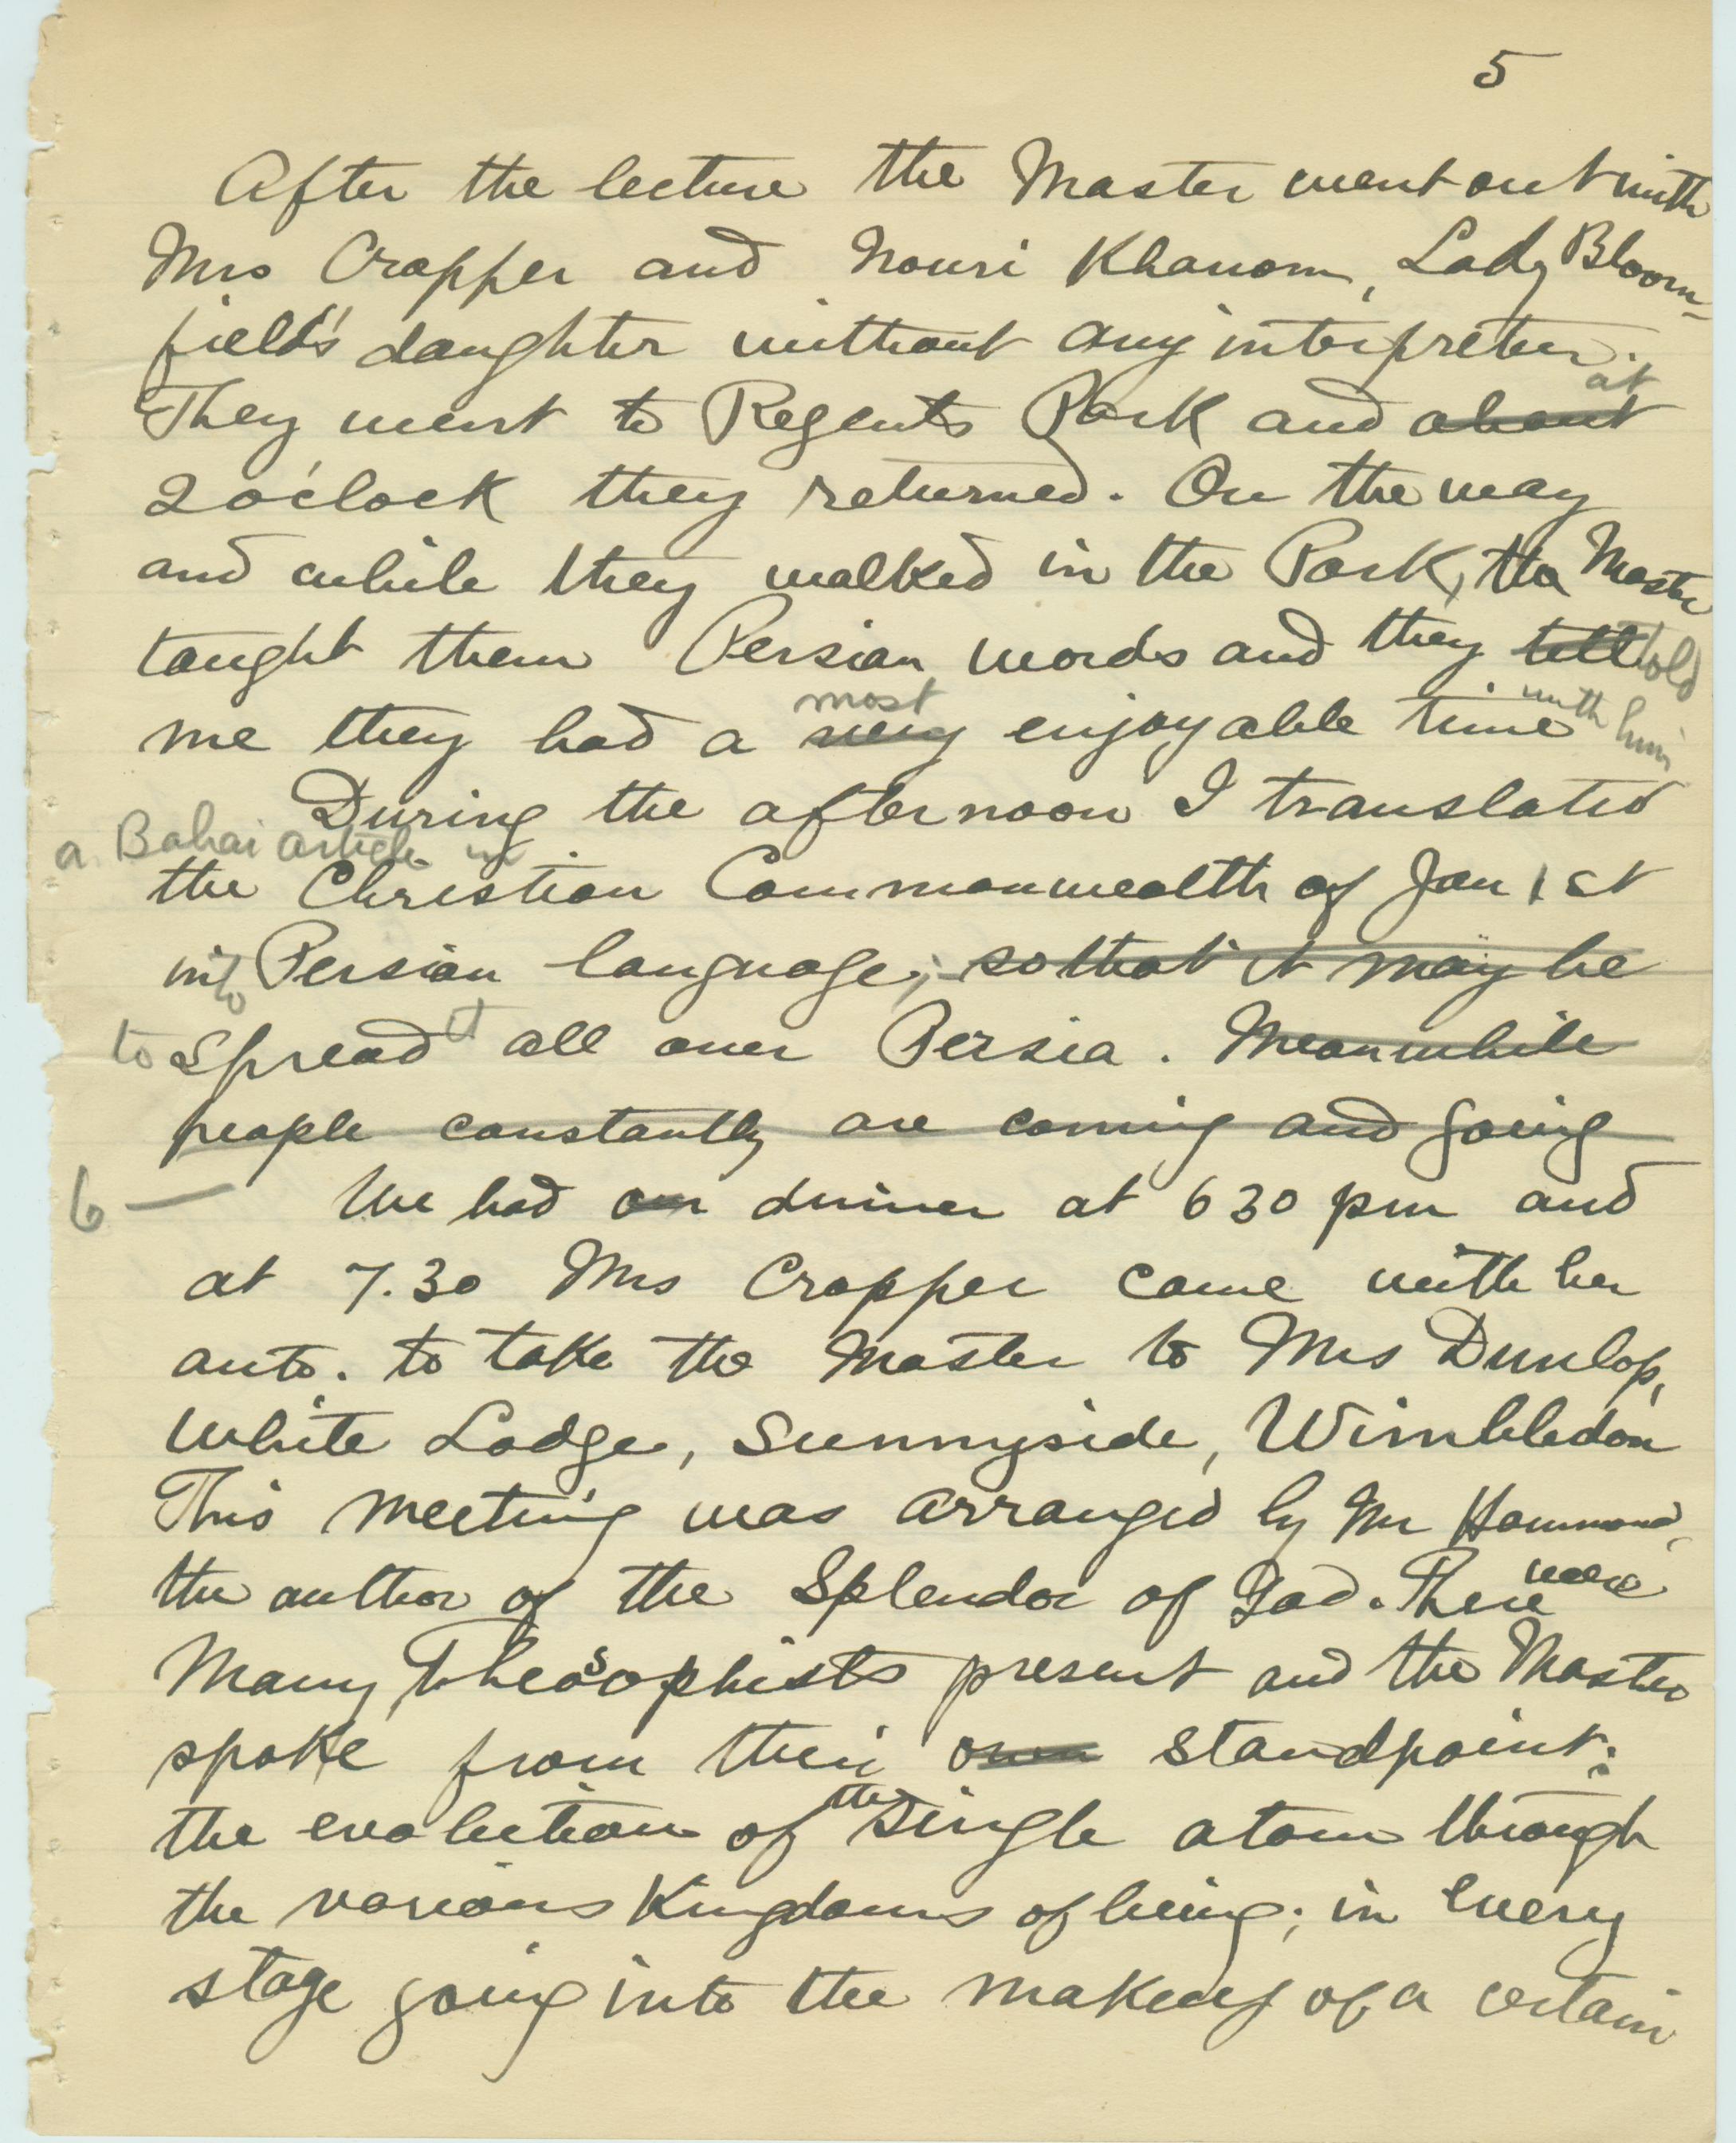 5
After the lecture the Master went out with
Mrs Cropper and Nouri Khanom, Lady Bloom-
field's daughter without any interpreter.
at
They went to Regents Park and about
2 o'clock they returned. On the way
and while they walked in the Park, the Master
taught them Persian words and they tell told
most with him
me they had a very enjoyable time
During the afternoon I translated
a Bahai article in
the Christian Commonwealth of Jan 1st
into Persian language, so that it may be
to spread it all over Persia. Meanwhile
people constantly are coming and going
6 — We had our dinner at 6 30 pm and
at 7.30 Mrs Cropper came with her
auto. to take the Master to Mrs Dunlop,
White Lodge, Sunnyside, Wimbledon
This meeting was arranged by Mr Hammond,
were
the author of the Splendor of God. There
Many Theosophists present and the Master
spoke from their own standpoint:
the
the evolution of single atom through
the various Kingdoms of being; in every
stage going into the making of a certain